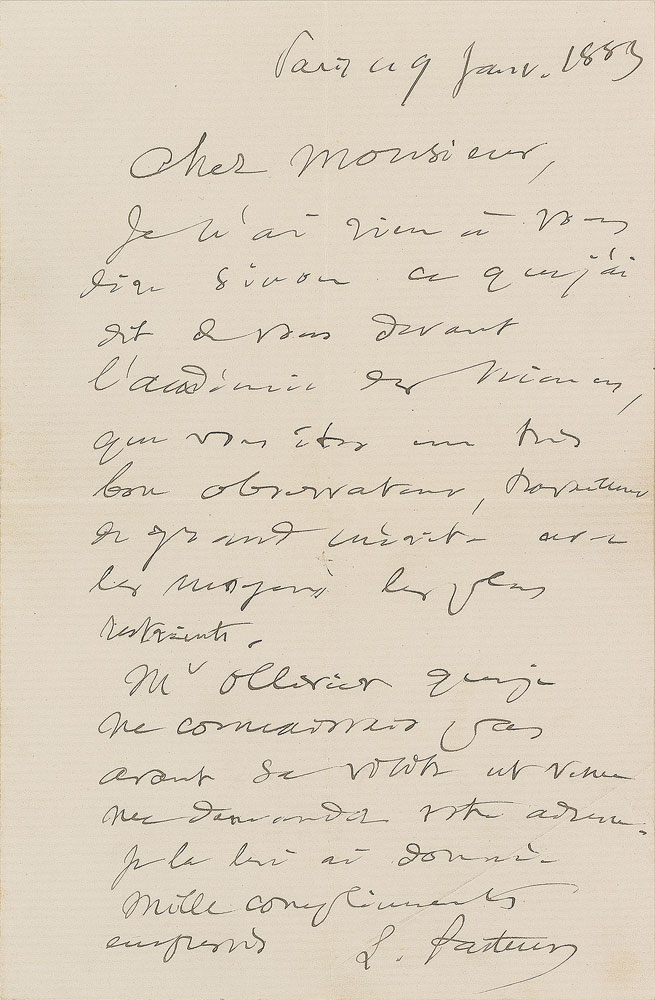 Paris ce 9 Janv. 1883
Cher Monsieur,
Je n'ai rien à vous
dire sinon ce que j'ai
dit de vous devant
l'académie des sciences,
que vous êtes un très
bon observateur, travailleur
de grand mérite avec
les moyens les plus
restreints.
Mr Ollivier que je
ne connaissais pas
avant sa visite est venu
me demander votre adresse.
je la lui ai donnée
Mille compliments
empressés L. Pasteur